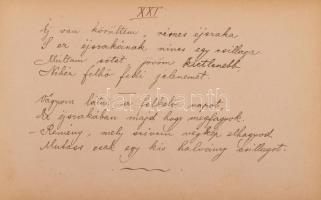 XXI
Éj van körültem, vészes éjszaka
S ez éjszakának nincs egy csillaga
Multam sötét, jövőm kietlenebb
Nehéz felhő fedi jelenemet.
Vágyom látni a felkelő napot,
Az éjszakában majd hogy megfagyok.
- Remény, mely szivem végkép elhagyod
Mutass csak egy kis halvány csillagot.
darabanth